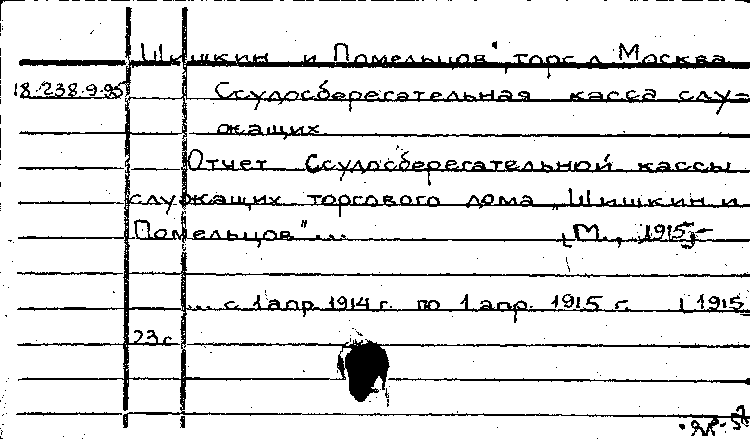 „Шишкин и Помельцов", торг. д. Москва
18.238.9.95 Ссудосберегательная касса слу-
жащих.
Отчет Ссудосберегательной кассы
служащих торгового дома „Шишкин и
Помельцов"... [М., 1915]-
... с 1 апр. 1914 г. по 1 апр. 1915 г. [1915]
23 с